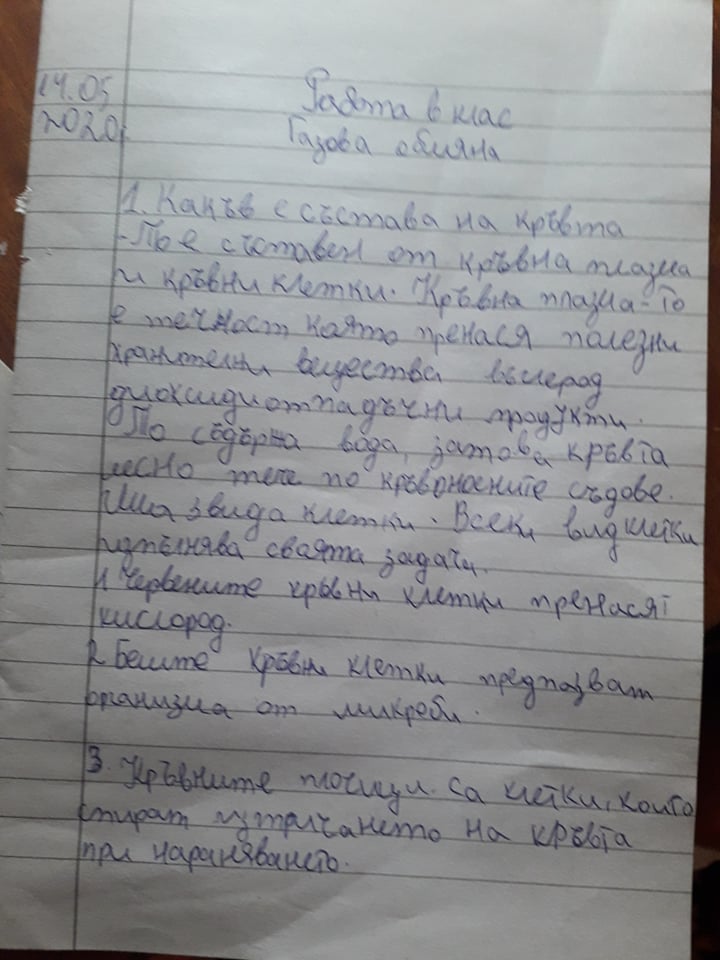 14.05
2020г
Работа в клас
Газова обмяна
1. Какъв е състава на кръвта
-То е съставен от кръвна плазма
и кръвни клетки. Кръвна плазма-То
е течност която пренася полезни
хранителни вещества въглерод
диоксидиотпадъчни продукти.
То съдържа вода, затова кръвта
лесно тече по кръвоносните съдове.
Има 3 вида клетки. Всеки вид клетки
изпълнява своята задачи.
1. Червените кръвни клетки пренасят
кислород.
2. Белите кръвни клетки предпазват
организма от микроби.
3. Кръвните плочици. Са клетки, които
спират изтичането на кръвта
при нараняването.